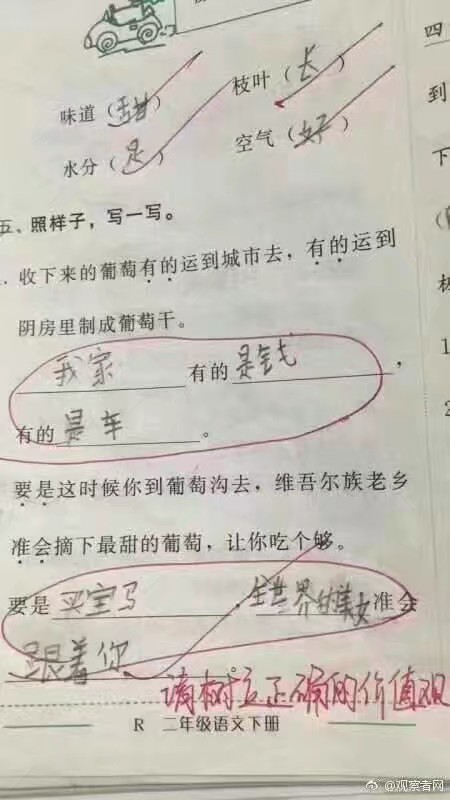 味道（甜） 枝叶（长）
水分（足） 空气（好）
五、照样子，写一写。
收下来的葡萄有的运到城市去，有的运到
阴房里制成葡萄干。
我家有的是钱，
有的是车。
要是这时候你到葡萄沟去，维吾尔族老乡
准会摘下最甜的葡萄，让你吃个够。
要是买宝马，全世界的美女准会
跟着你
请树立正确的价值观
R 二年级语文下册
四
到
下
1
2
@观察者网